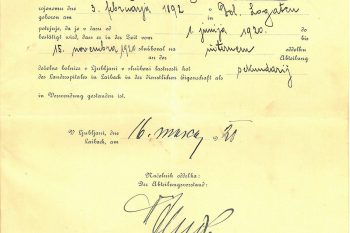 rojenemu dne 3. februarja 192 v Dol. Logatcu
geboren am
potrjuje, da je v času od 1 junija 1920. do
bestätigt wird, dass er in der Zeit vom bis
15. novembra 1920 služboval na internem oddelku
Abteilung
deželne bolnice v Ljubljani v službeni lastnosti kot
des Landesspitales in Laibach in der dienstlichen Eigenschaft als
sekundarij
in Verwendung gestanden ist.
V Ljubljani, dne
Laibach, am
16. marca
Načelnik oddelka:
Der Abteilungsvorstand: